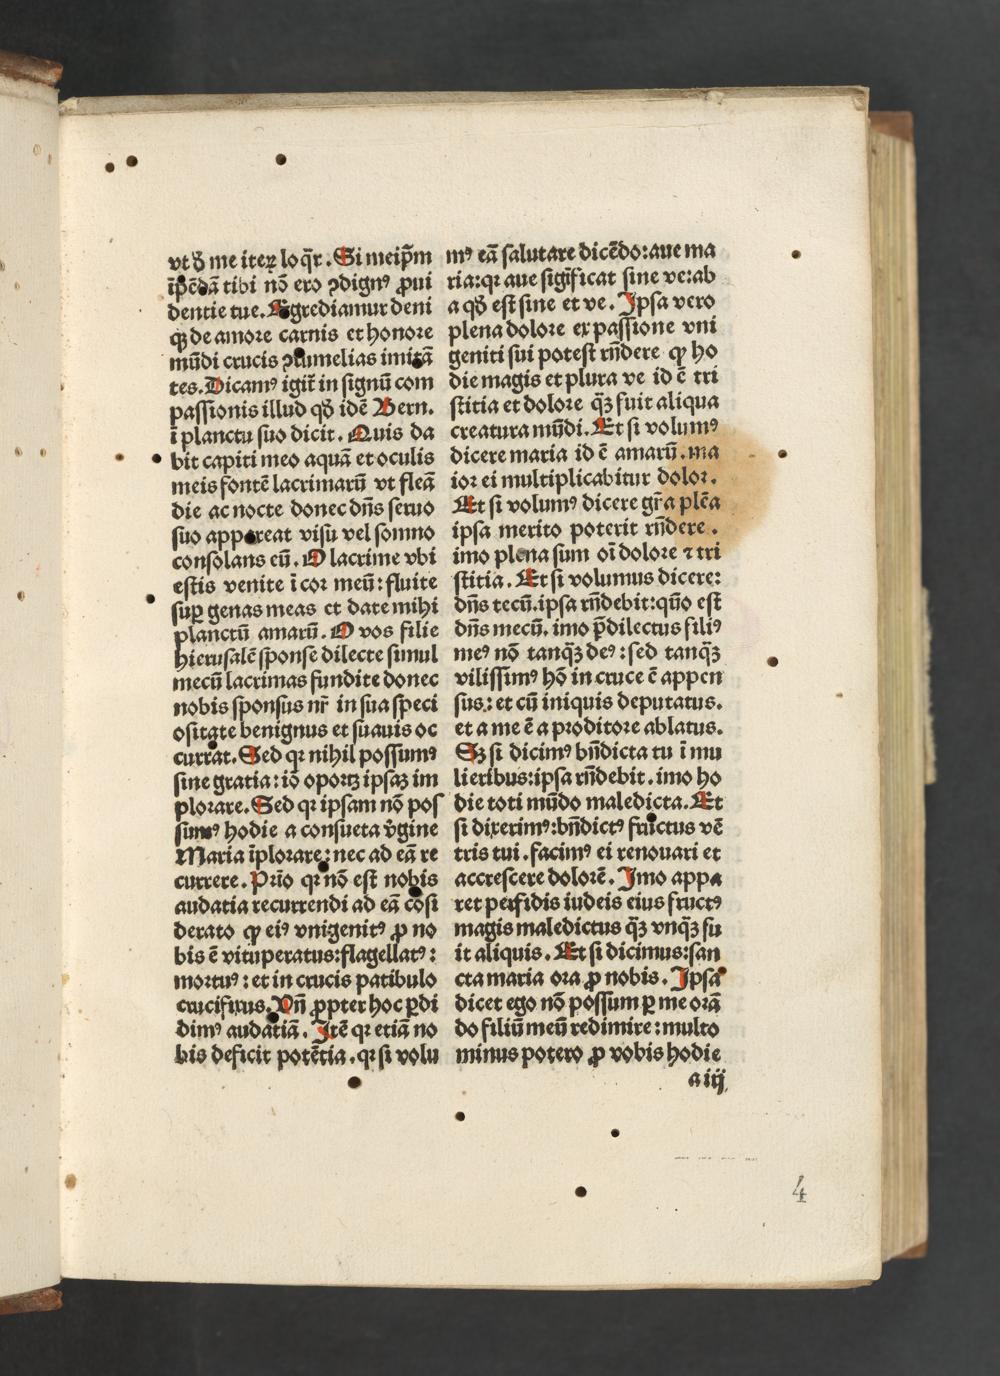 vt ð me iteꝝ loq̄r. Si meip̄m
īpēdā tibi nō ero ꝯdignꝰ ꝓui
dentie tue. Egrediamur deni
qꝫ de amore carnis et honore
mūdi crucis ꝯtumelias imitā
tes. Dicamꝰ igit̄ in signū com
passionis illud qð idē Bern.
ī planctu suo dicit. Quis da
bit capiti meo aquā et oculis
meis fontē lacrimarū vt fleā
die ac nocte donec dn̄s seruo
suo appareat visu vel somno
consolans eū. O lacrime vbi
estis venite ī cor meū: fluite
suꝑ genas meas et date mihi
planctū amarū. O vos filie
hierusalē sponse dilecte simul
mecū lacrimas fundite donec
nobis sponsus nr̄ in sua speci
ositate benignus et suauis oc
currat. Sed qꝛ nihil possumꝰ
sine gratia: iō oportꝫ ipsaꝫ im
plorare. Sed qꝛ ipsam nō pos
sumꝰ hodie a consueta v̄gine
Maria īplorare: nec ad eā re
currere. Prīo qꝛ nō est nobis
audatia recurrendi ad eā cōsi
derato ꝙ eiꝰ vnigenitꝰ ꝓ no
bis ē vituperatus: flagellatꝰ:
mortuꝰ: et in crucis patibulo
crucifixus. Vn̄ ꝓpter hoc ꝑdi
dimꝰ audatiā. Itē qꝛ etiā no
bis deficit potētia. qꝛ si volu
mꝰ eā salutare dicēdo: aue ma
ria: qꝛ aue sigīficat sine ve: ab
a qð est sine et ve. Ipsa vero
plena dolore ex passione vni
geniti sui potest rn̄dere ꝙ ho
die magis et plura ve id ē tri
stitia et dolore q̄ꝫ fuit aliqua
creatura mūdi. Et si volumꝰ
dicere maria id ē amarū. ma
ior ei multiplicabitur dolor.
Et si volumꝰ dicere gr̄a plēa
ipsa merito poterit rn̄dere.
imo plena sum oī dolore ⁊ tri
stitia. Et si volumus dicere:
dn̄s tecū. ipsa rn̄debit: qūo est
dn̄s mecū. imo p̄dilectus filiꝰ
meꝰ nō tanq̄ꝫ deꝰ: sed tanq̄ꝫ
vilissimꝰ hō in cruce ē appen
sus: et cū iniquis deputatus.
et a me ē a proditore ablatus.
Sꝫ si dicimꝰ bn̄dicta tu ī mu
lieribus: ipsa rn̄debit. imo ho
die toti mūdo maledicta. Et
si dixerimꝰ: bn̄dictꝰ fructus vē
tris tui. facimꝰ ei renouari et
accrescere dolorē. Imo appa
ret perfidis iudeis eius fructꝰ
magis maledictus q̄ꝫ vnq̄ꝫ fu
it aliquis. Et si dicimus: san
cta maria ora ꝓ nobis. Ipsa
dicet ego nō possum ꝑ me orā
do filiū meū redimire: multo
minus potero ꝓ vobis hodie
a iij
4